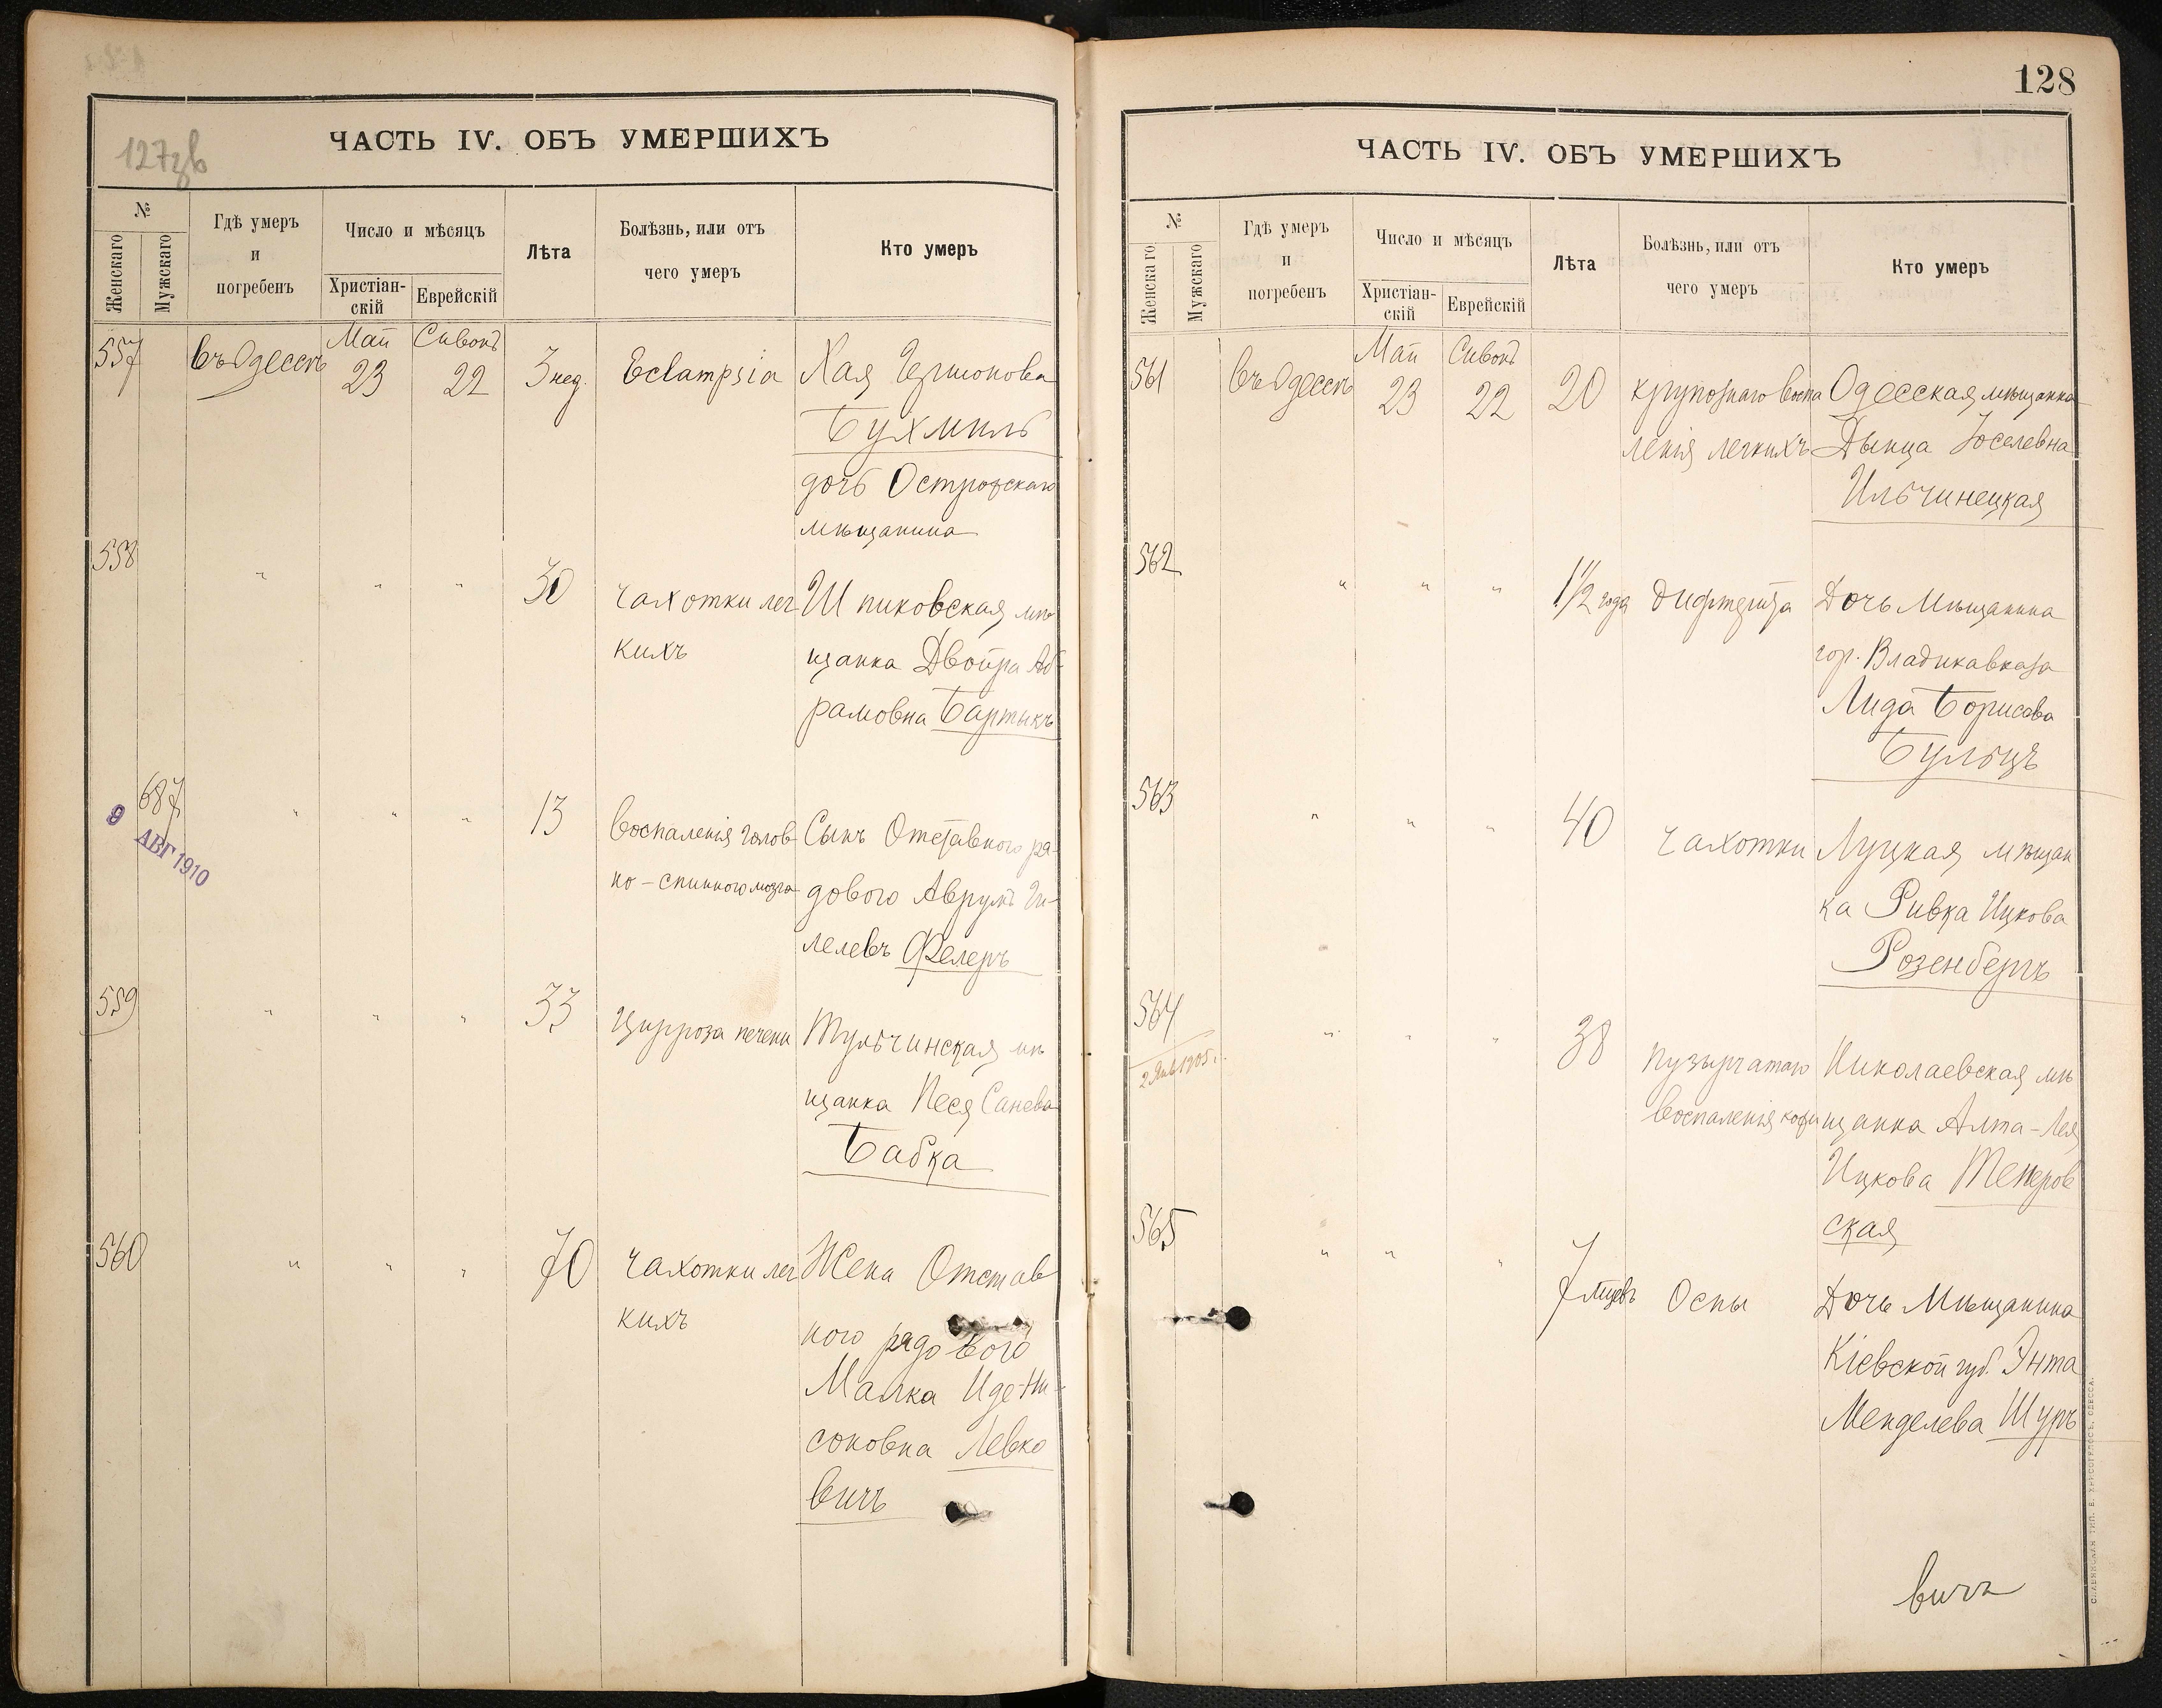 127 зв
ЧАСТЬ IV. ОБЪ УМЕРШИХЪ
№
Женскаго
Мужскаго
Гдѣ умеръ
и
погребенъ
Число и мѣсяцъ
Христіан-
скій
Еврейскій
Лѣта
Болѣзнь, или отъ
чего умеръ
Кто умеръ
557
въ Одессѣ
Май
23
Сивонъ
22
3 нед.
Eclampsia
Хая Гершонова
Бухмиль
дочь Острожскаго
мѣщанина
558
"
"
"
30
чахотки лег
кихъ
Шпиковская мѣ
щанка Двойра Аб-
рамовна Бартыкъ
687
9 АВГ 1910
"
"
"
13
воспаленія голов
но-спинного мозга
Сынъ Отставного ря-
дового Аврумъ Ги-
лелевъ Фелеръ
559
"
"
"
33
Цирроза печени
Тульчинская мѣ
щанка Песя Санева
Бабка
560
"
"
"
70
чахотки лег
кихъ
Жена Отстав
ного рядового
Малка Иде-Ни-
соновна Левко
вичъ
128
ЧАСТЬ IV. ОБЪ УМЕРШИХЪ
№
Женскаго
Мужскаго
Гдѣ умеръ
и
погребенъ
Число и мѣсяцъ
Христіан-
скій
Еврейскій
Лѣта
Болѣзнь, или отъ
чего умеръ
Кто умеръ
561
въ Одессѣ
Май
23
Сивонъ
22
20
крупознаго воспа
ленія легкихъ
Одесская мѣщанка
Дынца Іоселевна
Ильчинецкая
562
"
"
"
1 1/2 года
дифтерита
Дочь Мѣщанина
гор. Владикавказа
Лида Борисова
Бульцъ
563
"
"
"
40
чахотки
Луцкая мѣщан
ка Ривка Ицкова
Розенбергъ
564
2 Янв 1905 г.
"
"
"
38
пузырчатаго
воспаленія кожи
Николаевская мѣ
щанка Алта-Лея
Ицкова Теперов
ская
565
"
"
"
7 мцевъ
Оспы
Дочь Мѣщанина
Кіевской губ. Энта
Менделева Шуръ
вичъ
СЛАВЯНСКАЯ ТИП. Е. ХРИСОГЕЛОСЪ, ОДЕССА.